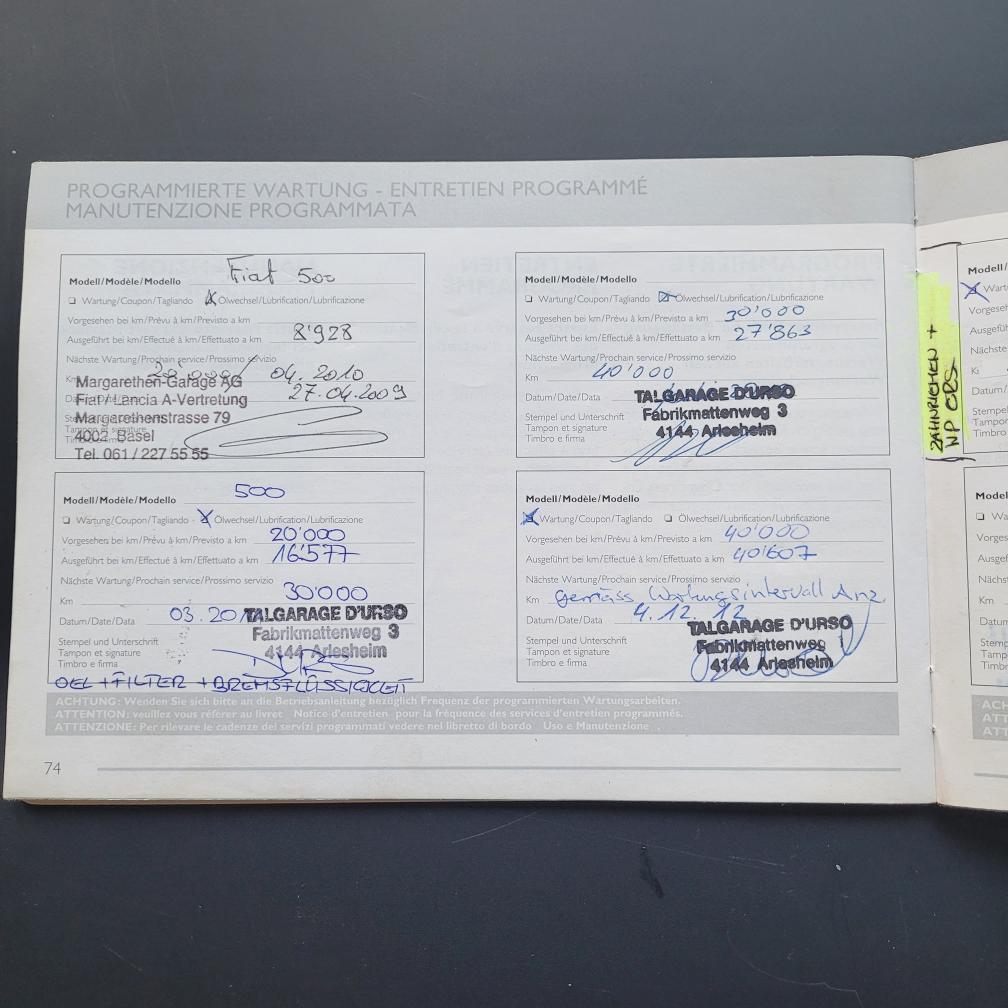 PROGRAMMIERTE WARTUNG - ENTRETIEN PROGRAMMÉ
MANUTENZIONE PROGRAMMATA
Modell/Modèle/Modello Fiat 500
Wartung/Coupon/Tagliando X Ölwechsel/Lubrification/Lubrificazione
Vorgesehen bei km/Prévu à km/Previsto a km
Ausgeführt bei km/Effectué à km/Effettuato a km 8'928
Nächste Wartung/Prochain service/Prossimo servizio
Km 04.2010
27.04.2009
Margarethen-Garage AG
Fiat / Lancia A-Vertretung
Margarethenstrasse 79
4002 Basel
Tel. 061 / 227 55 55
Tampon et signature
Timbro e firma
Modell/Modèle/Modello 500
Wartung/Coupon/Tagliando X Ölwechsel/Lubrification/Lubrificazione
Vorgesehen bei km/Prévu à km/Previsto a km 20'000
Ausgeführt bei km/Effectué à km/Effettuato a km 16577
Nächste Wartung/Prochain service/Prossimo servizio
Km 30'000
Datum/Date/Data 03.
TALGARAGE D'URSO
Fabrikmattenweg 3
4144 Arlesheim
Stempel und Unterschrift
Tampon et signature
Timbro e firma
OEL + FILTER + BREMSFLÜSSIGKEIT
Modell/Modèle/Modello
Wartung/Coupon/Tagliando X Ölwechsel/Lubrification/Lubrificazione
Vorgesehen bei km/Prévu à km/Previsto a km 30'000
Ausgeführt bei km/Effectué à km/Effettuato a km 27'863
Nächste Wartung/Prochain service/Prossimo servizio
Km 40'000
Datum/Date/Data
TALGARAGE D'URSO
Fabrikmattenweg 3
4144 Arlesheim
Stempel und Unterschrift
Tampon et signature
Timbro e firma
Modell/Modèle/Modello
X Wartung/Coupon/Tagliando Ölwechsel/Lubrification/Lubrificazione
Vorgesehen bei km/Prévu à km/Previsto a km 40'000
Ausgeführt bei km/Effectué à km/Effettuato a km 40'607
Nächste Wartung/Prochain service/Prossimo servizio
Km gemäss Wartungsintervall Anz.
Datum/Date/Data 4.12.12
TALGARAGE D'URSO
Fabrikmattenweg
4144 Arlesheim
Stempel und Unterschrift
Tampon et signature
Timbro e firma
ACHTUNG: Wenden Sie sich bitte an die Betriebsanleitung bezüglich Frequenz der programmierten Wartungsarbeiten.
ATTENTION: veuillez vous référer au livret Notice d'entretien pour la fréquence des services d'entretien programmés.
ATTENZIONE: Per rilevare le cadenze dei servizi programmati vedere nel libretto di bordo Uso e Manutenzione
74
ZAHNRIEMEN +
WP